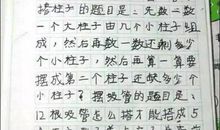 搭柱子的题目是：先数一数
一个大柱子由几个小柱子组
成，然后再数一数还剩多少
个小柱子，然后再算一算要
摆成第一个柱子还缺多少个
小柱子？摆吸管的题目是、
12根吸管怎么搭才能搭成5